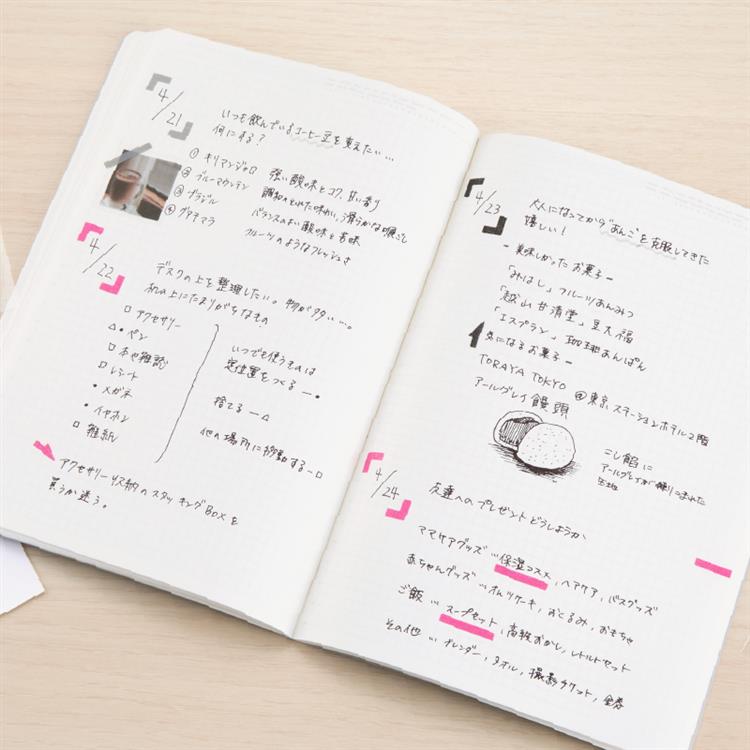 4/21
いつも飲んでいるコーヒー豆を変えたい…
何にする?
① キリマンジャロ 強い酸味とコク、甘い香り
② ブルーマウンテン 調和のとれた味わい、滑らかな喉ごし
③ ブラジル バランスのよい酸味と苦味
④ グアテマラ フルーツのようなフレッシュさ
4/22
デスクの上を整理したい。物が多い…。
机の上にたまりがちなもの
□ アクセサリー
△ • ペン
□ 本や雑誌
□ レシート
• メガネ
• イヤホン
□ 雑紙
いつでも使うものは
定位置をつくる ー •
捨てる ー △
他の場所に移動する ー □
アクセサリー収納のスタッキングBoxを
買うか迷う。
4/23
大人になってから"あんこ"を克服してきた
嬉しい!
- 美味しかったお菓子 -
「みはし」フルーツあんみつ
「越山甘清堂」豆大福
「エスプラン」珈琲あんぱん
気になるお菓子 -
TORAYA TOKYO @東京ステーションホテル2階
アールグレイ饅頭
こし餡に
アールグレイが練りこまれた
生地
4/24
友達へのプレゼントどうしようか
ママケアグッズ … 保湿コスメ、ヘアケア、バスグッズ
赤ちゃんグッズ … オムツケーキ、おくるみ、おもちゃ
ご飯 … スープセット、高級おかし、レトルトセット
その他 … カレンダー、タオル、撮影チケット、金券